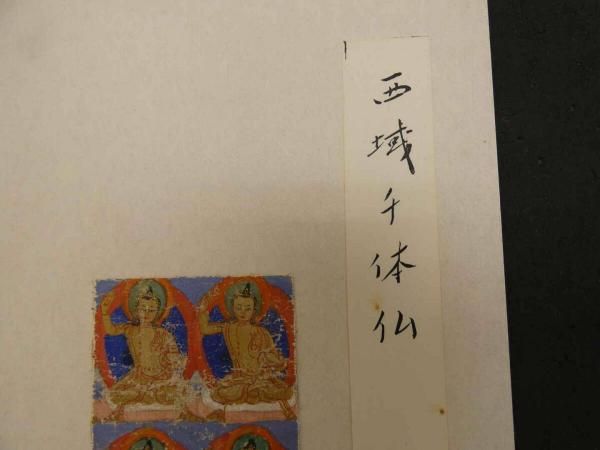 西域千体仏